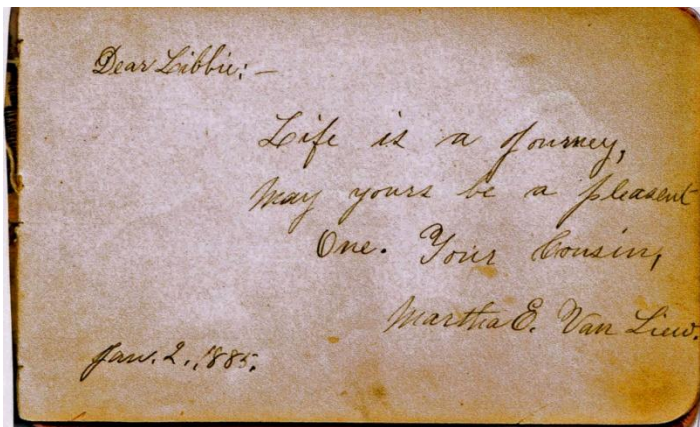 Dear Libbie:—
Life is a Journey,
May yours be a pleasent
One. Your Cousin,
Martha E. Van Liew.
Jan. 2, 1885.